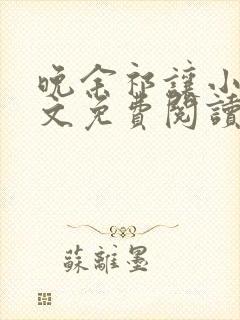 晚余祁讓小
文免費閱讀
蘇離墨